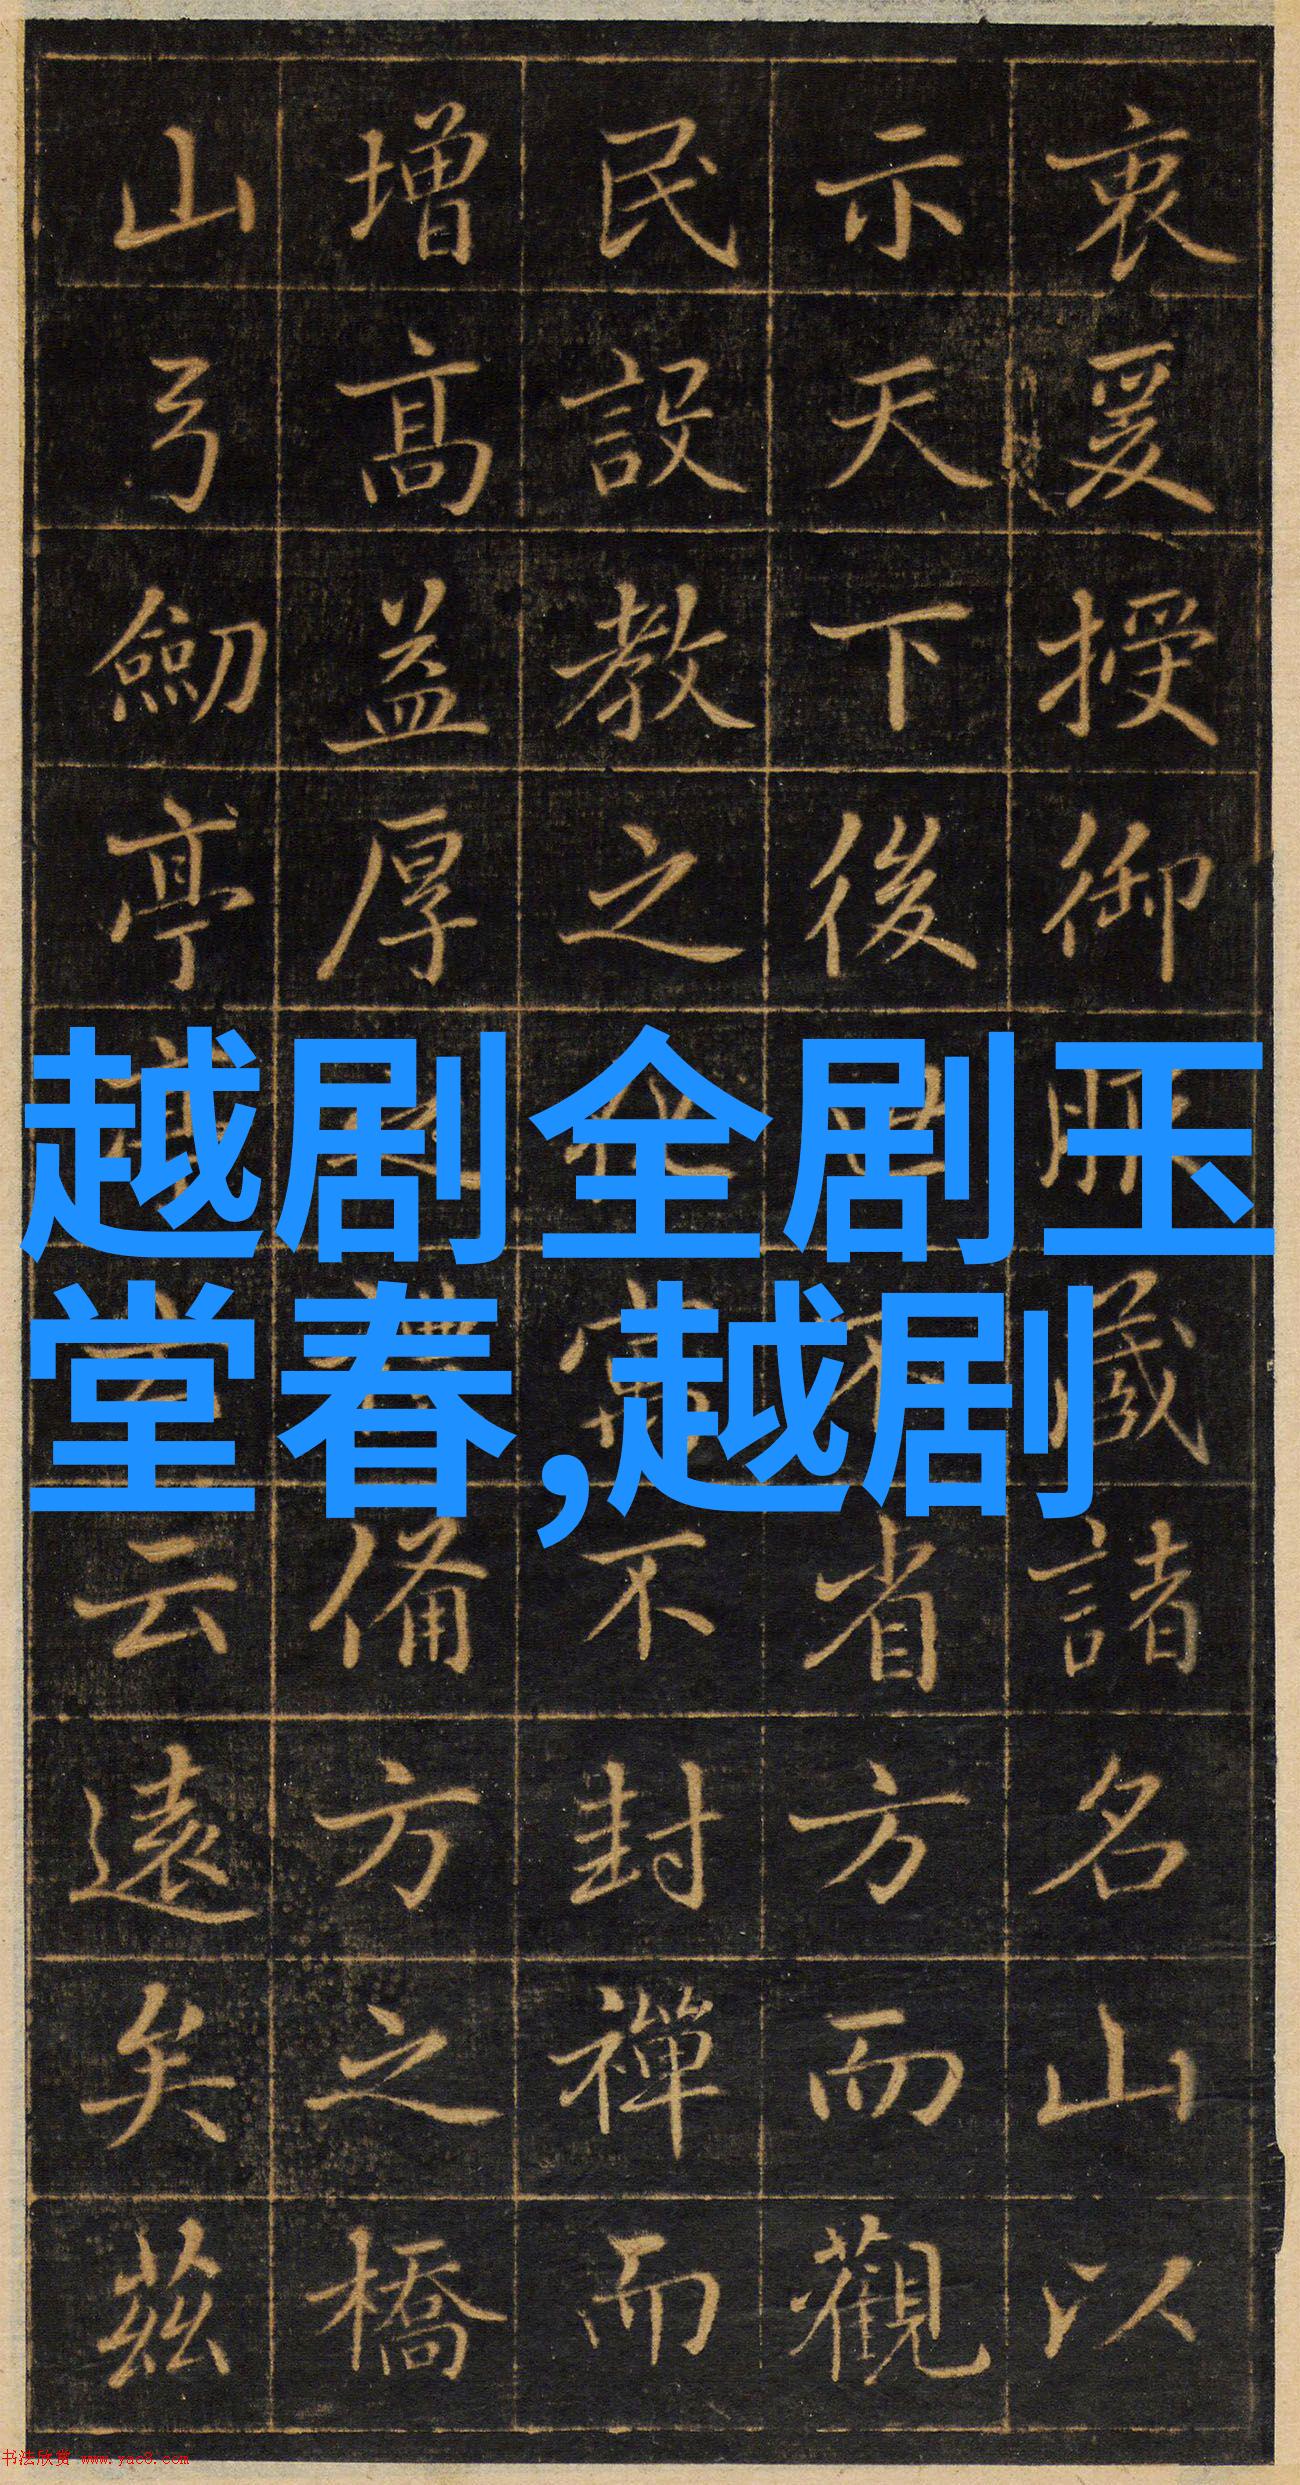 衷爰授御藏諸名山以
示天下後省方而觀
民設教之不封禪而
增高益厚備方之橋
山弓劒亭云遠矣茲
越剧全剧玉
堂春,越剧
书法欣赏 www.yac8.com